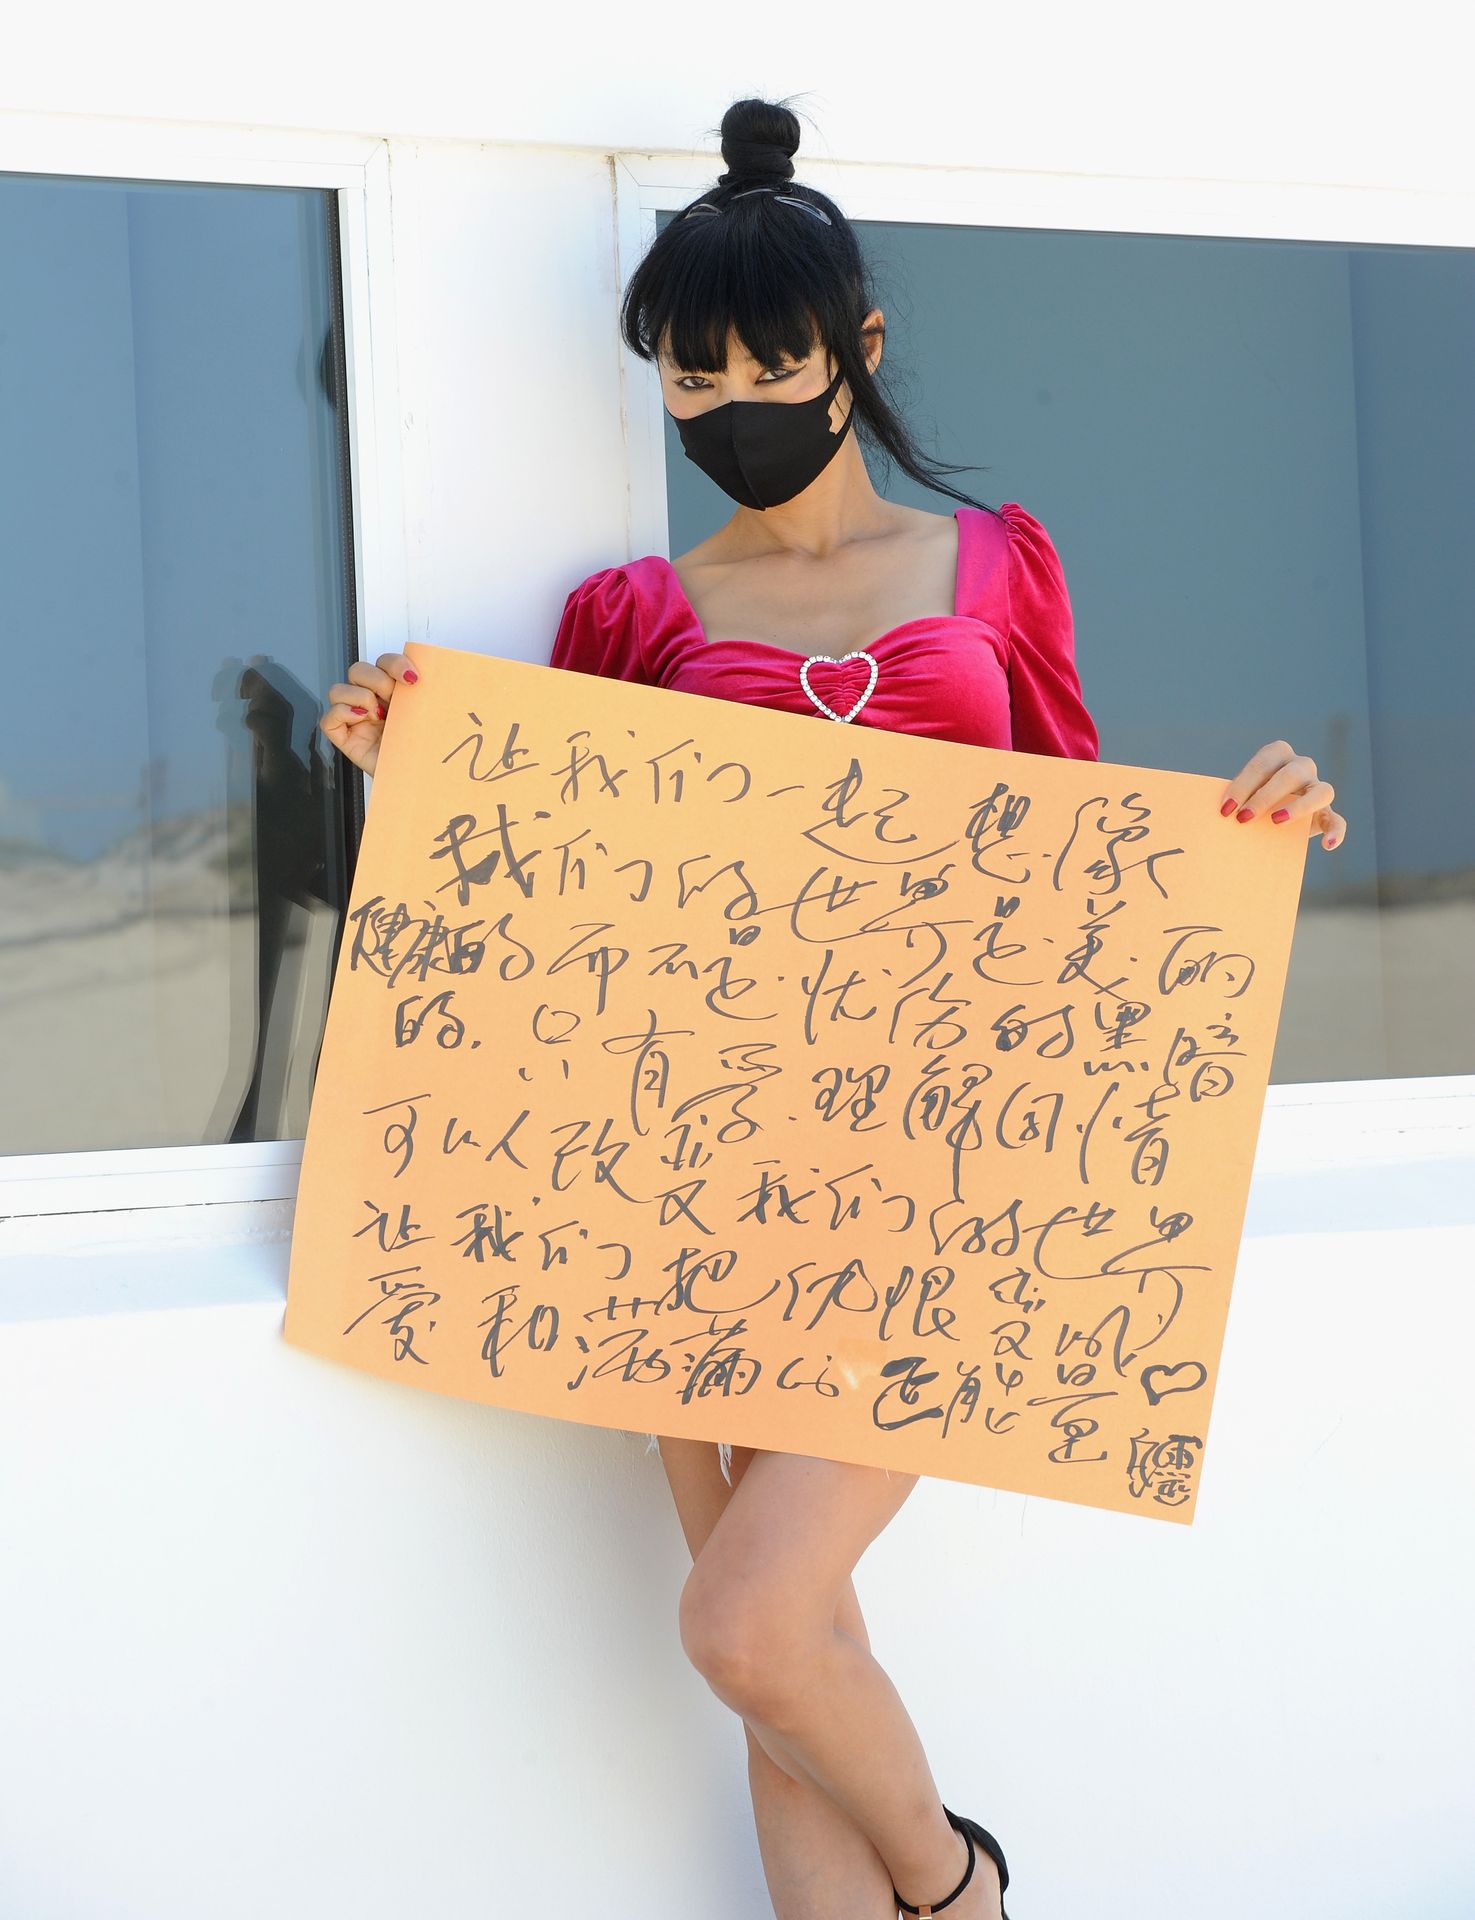 让我们一起想像
我们的世界是美丽
健康的而不是忧伤的黑暗
的.只有爱.理解同情
可以改变我们的世界
让我们把仇恨变成
爱和洒满心正能量♡